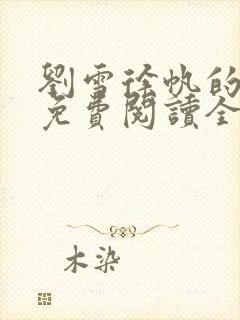 劉雪徐帆的
免費閱讀全
木染